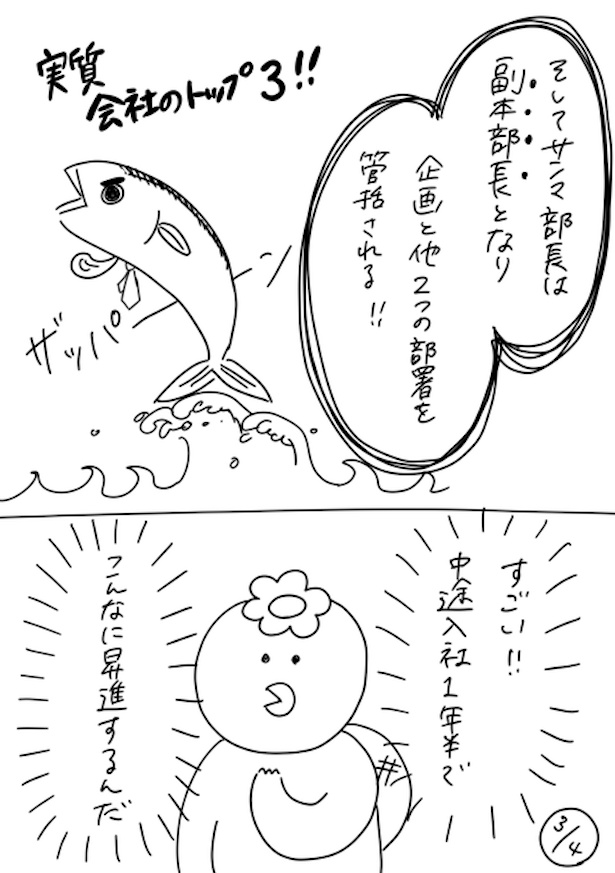 そしてサンマ部長は
副本部長となり
企画と他2つの部署を
管括される!!
実質
会社のトップ3!!
ザッパーン
すごい!!
中途入社1年半で
こんなに昇進するんだ
3/4